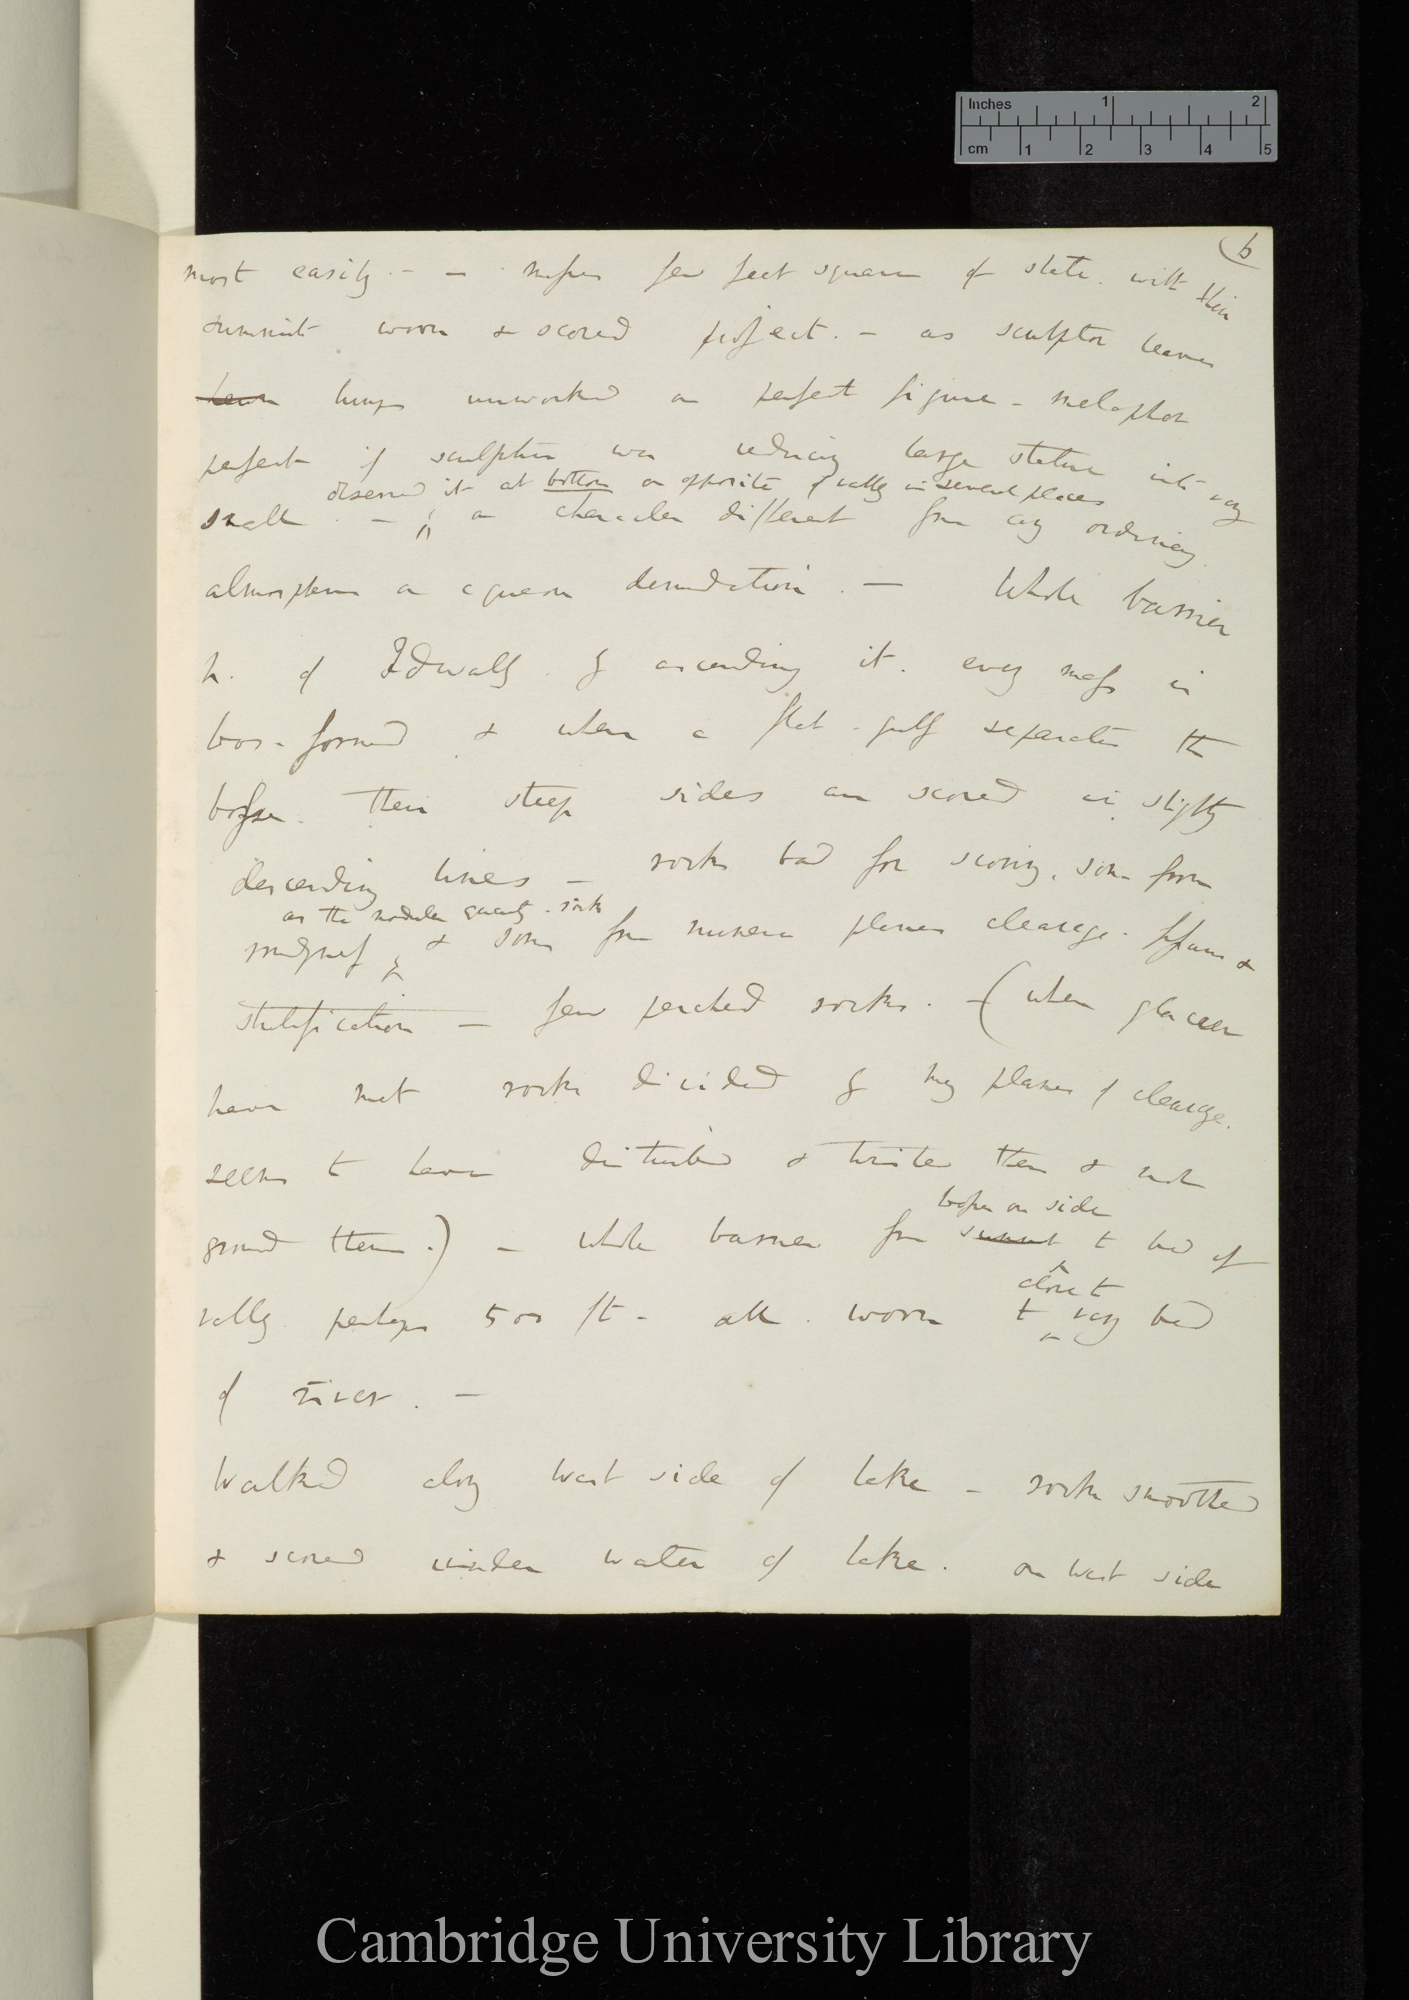 Inches 1 2
cm 1 2 3 4 5
(6
most easily. — — masses few feet square of slate. with their
summit worn & scored project. — as sculptor leaves
lumps unworked on perfect figure — metaphor
perfect if sculptor was reducing large statue into very
observed it at bottom on opposite of valley in several places
small. — a character different from any ordinary
atmospheric or aqueous denudation. — Whole barrier
of Idwall, of ascending it. every mass is
boss-formed & when a flat-gulf separates the
bosses. their steep sides are scored in slightly
descending lines — rocks bad for scoring, some from
as the nodular rock
& some from numerous planes cleavage.
stratification — few perched rocks. — (when glacier
have met rocks divided by many planes of cleavage.
seems to have disturbed & them & not
ground them.) — whole barrier from summit to bed of
bosses on side
close to
valley perhaps 500 ft — all worn to very bed
of river. —
Walked along West side of lake — rocks smoothed
& scored under water of lake. on West side
Cambridge University Library